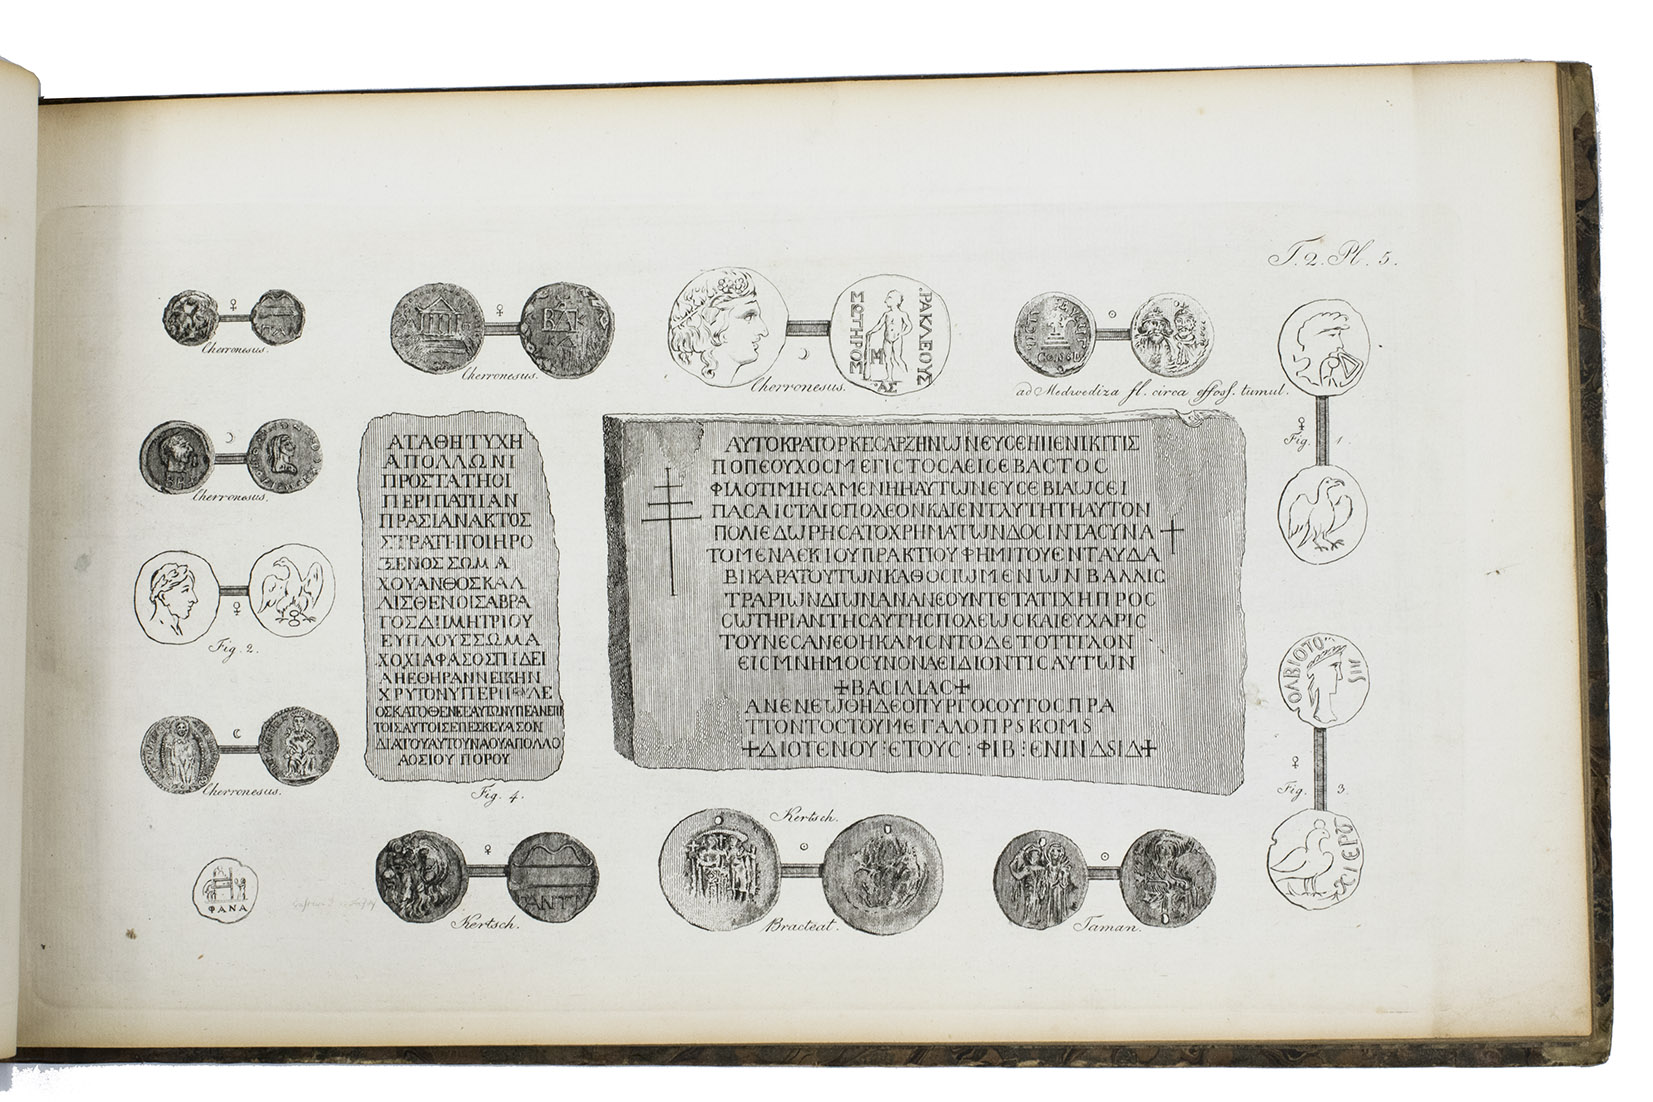 T. 2. Pl. 5.
Cherronesus.
Cherronesus.
ΜΩΤΗΡΟΣ
ΡΑΚΛΕΟΥΣ
Μ
ΑΣ
Cherronesus.
ad Medwediza fl. circa effoss. tumul.
Cherronesus.
Fig. 2.
Cherronesus.
ΦΑΝΑ
ΑΤΑΘΗΤΥΧΗ
ΑΠΟΛΛΩΝΙ
ΠΡΟΣΤΑΤΗΟΙ
ΠΕΡΙΠΑΤΙΙΑΝ
ΠΡΑΣΙΑΝΑΚΤΟΣ
ΣΤΡΑΤΗΓΟΙΗΡΟ
ΞΕΝΟΣΣΩΜΑ
ΧΟΥΑΝΘΟΣΚΑΛ
ΛΙΣΘΕΝΟΙΣΑΒΡΑ
ΓΟΣΔΙΙΜΗΤΡΙΟΥ
ΕΥΠΛΟΥΣΣΩΜΑ
ΧΟΧΙΑΦΑΣΟΣΠΙΔΕΙ
ΛΗΕΘΗΡΑΝΝΕΙΚΗΝ
ΧΡΥΤΟΝΥΠΕΡΗ
ΤΟΙΣΑΥΤΟΙΣΕΠΕΣΚΕΥΑΣΟΝ
ΔΙΑΤΟΥΑΥΤΟΥΝΑΟΥΑΠΟΛΛΟ
ΑΟΣΙΟΥ ΠΟΡΟΥ
Fig. 4.
ΑΥΤΟΚΡΑΤΟΡΚΕCΑΡΖΗΝѠΝΕΥCΕΗΙΕΝΙΚΙΤΙΣ
ΠΟΠΕΟΥΧΟCΜΕΓΙCΤΟCΑΕΙCΕΒΑCΤΟC
ΦΙΛΟΤΙΜΗCΑΜΕΝΗΗΑΥΤѠΝΕΥCΕΒΙΑѠCΕΙ
ΠΑCΑΙCΤΑΙCΠΟΛΕΟΝΚΑΙΕΝΤΑΥΤΗΤΗΑΥΤΟΝ
ΠΟΛΙΕΔѠΡΗCΑΤΟΧΡΗΜΑΤѠΝΔΟCΙΝΤΑCΥΝΑ
ΤΟΜΕΝΑΕΚΙΟΥΠΡΑΚΤΙΟΥΦΗΜΙΤΟΥΕΝΤΑΥΔΑ
ΒΙΚΑΡΑΤΟΥΤѠΝΚΑΘΟCΙѠΜΕΝѠΝΒΑΛΛΙC
ΤΡΑΡΙѠΝΔΙѠΝΑΝΑΝΕΟΥΝΤΕΤΑΤΙΧΗΠΡΟC
CѠΤΗΡΙΑΝΤΗCΑΥΤΗCΠΟΛΕѠCΚΑΙΕΥΧΑΡΙC
ΤΟΥΝΕCΑΝΕΟΗΚΑΜCΝΤΟΔΕΤΟΤΤΙΤΛΟΝ
ΕΙCΜΝΗΜΟCΥΝΟΝΑΕΙΔΙΟΝΤΙCΑΥΤѠΝ
✝ΒΑCΙΛΙΑC✝
ΑΝΕΝΕѠΘΗΔΕΟΠΥΡΓΟCΟΥΤΟCΠΡΑ
ΤΤΟΝΤΟCΤΟΥΜΕΓΑΛΟΠΡSΚΟΜS
✝ΔΙΟΤΕΝΟΥ:ΕΤΟΥC:ΦΙΒ:ΕΝΙΝΔSΙΔ✝
Fig. 1.
ΟΛΒΙΟΠΟ
Fig. 3.
ΙΕΡΩ
Kertsch.
Kertsch.
Bracteat.
Taman.